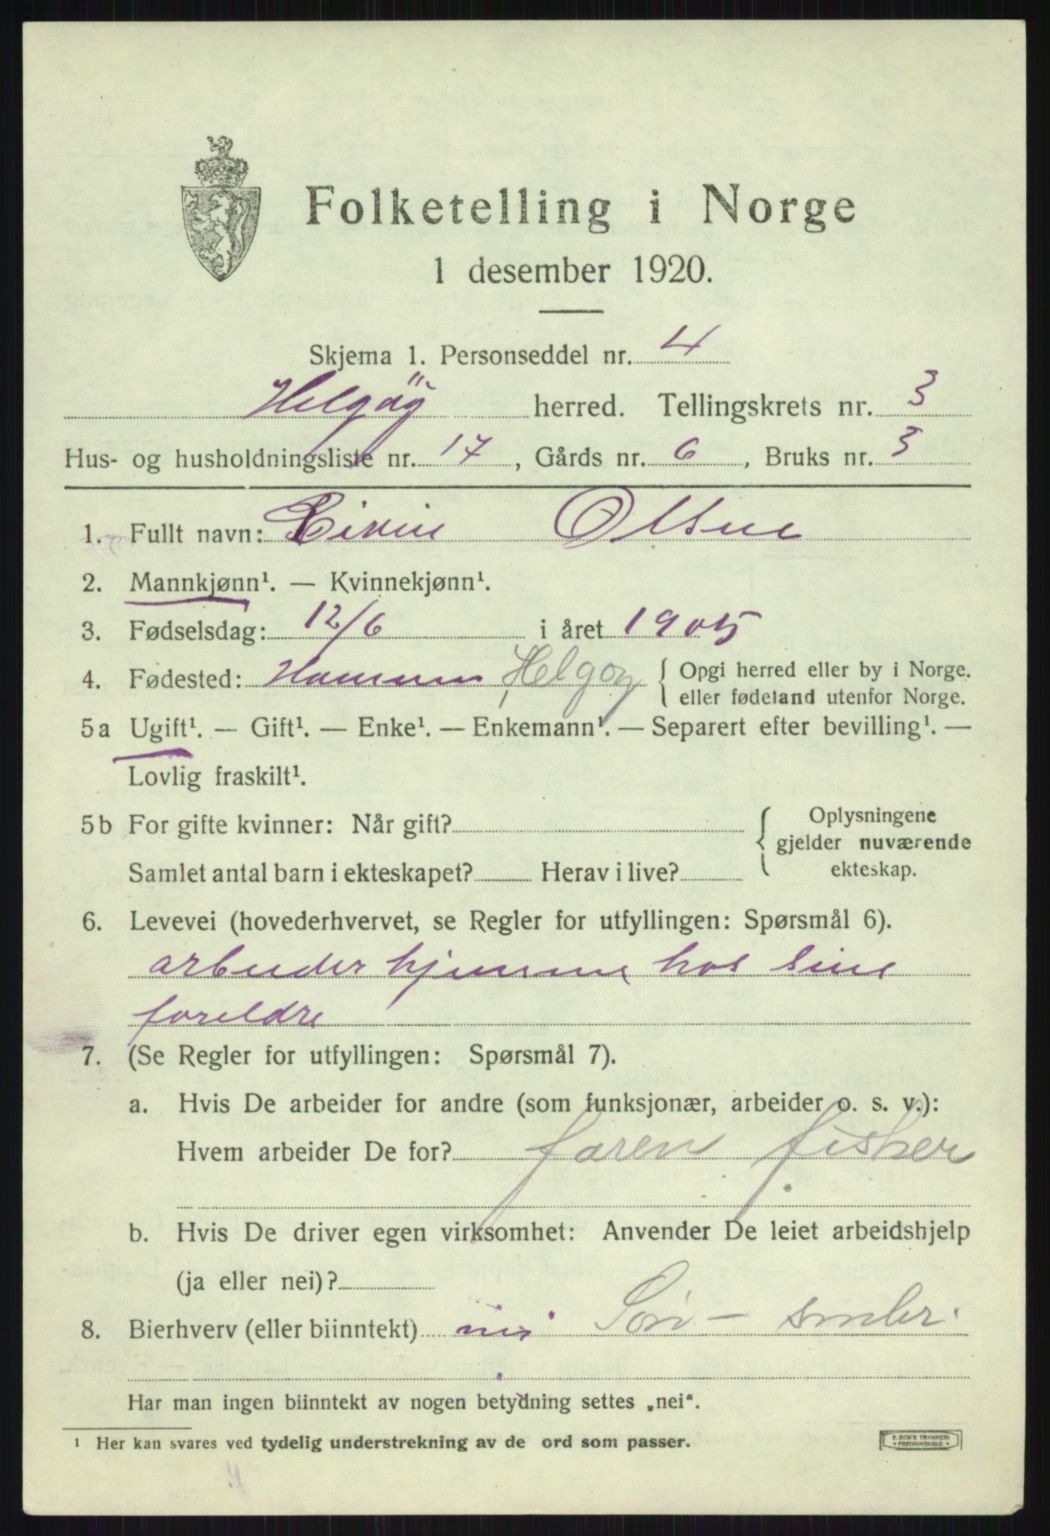 Folketelling i Norge
1 desember 1920.
Skjema 1. Personseddel nr. 4
Helgøy herred. Tellingskrets nr. 3
Hus- og husholdningsliste nr. 17, Gårds nr. 6, Bruks nr. 3
1. Fullt navn: Olsen
2. Mannkjønn¹. — Kvinnekjønn¹.
3. Fødselsdag: 12/6 i året 1905
4. Fødested: Hammer Helgøy { Opgi herred eller by i Norge.
eller fødeland utenfor Norge.
5a Ugift¹. — Gift¹. — Enke¹. — Enkemann¹. — Separert efter bevilling¹. —
Lovlig fraskilt¹.
5b For gifte kvinner: Når gift? { Oplysningene
gjelder nuværende
Samlet antal barn i ekteskapet? Herav i live? ekteskap.
6. Levevei (hovederhvervet, se Regler for utfyllingen: Spørsmål 6).
arbeider hjemme hos sine
foreldre
7. (Se Regler for utfyllingen: Spørsmål 7).
a. Hvis De arbeider for andre (som funksjonær, arbeider o. s. v.):
Hvem arbeider De for? faren fisker
b. Hvis De driver egen virksomhet: Anvender De leiet arbeidshjelp
(ja eller nei)?
8. Bierhverv (eller biinntekt) nei Søn - smbr.
Har man ingen biinntekt av nogen betydning settes „nei".
¹ Her kan svares ved tydelig understrekning av de ord som passer.